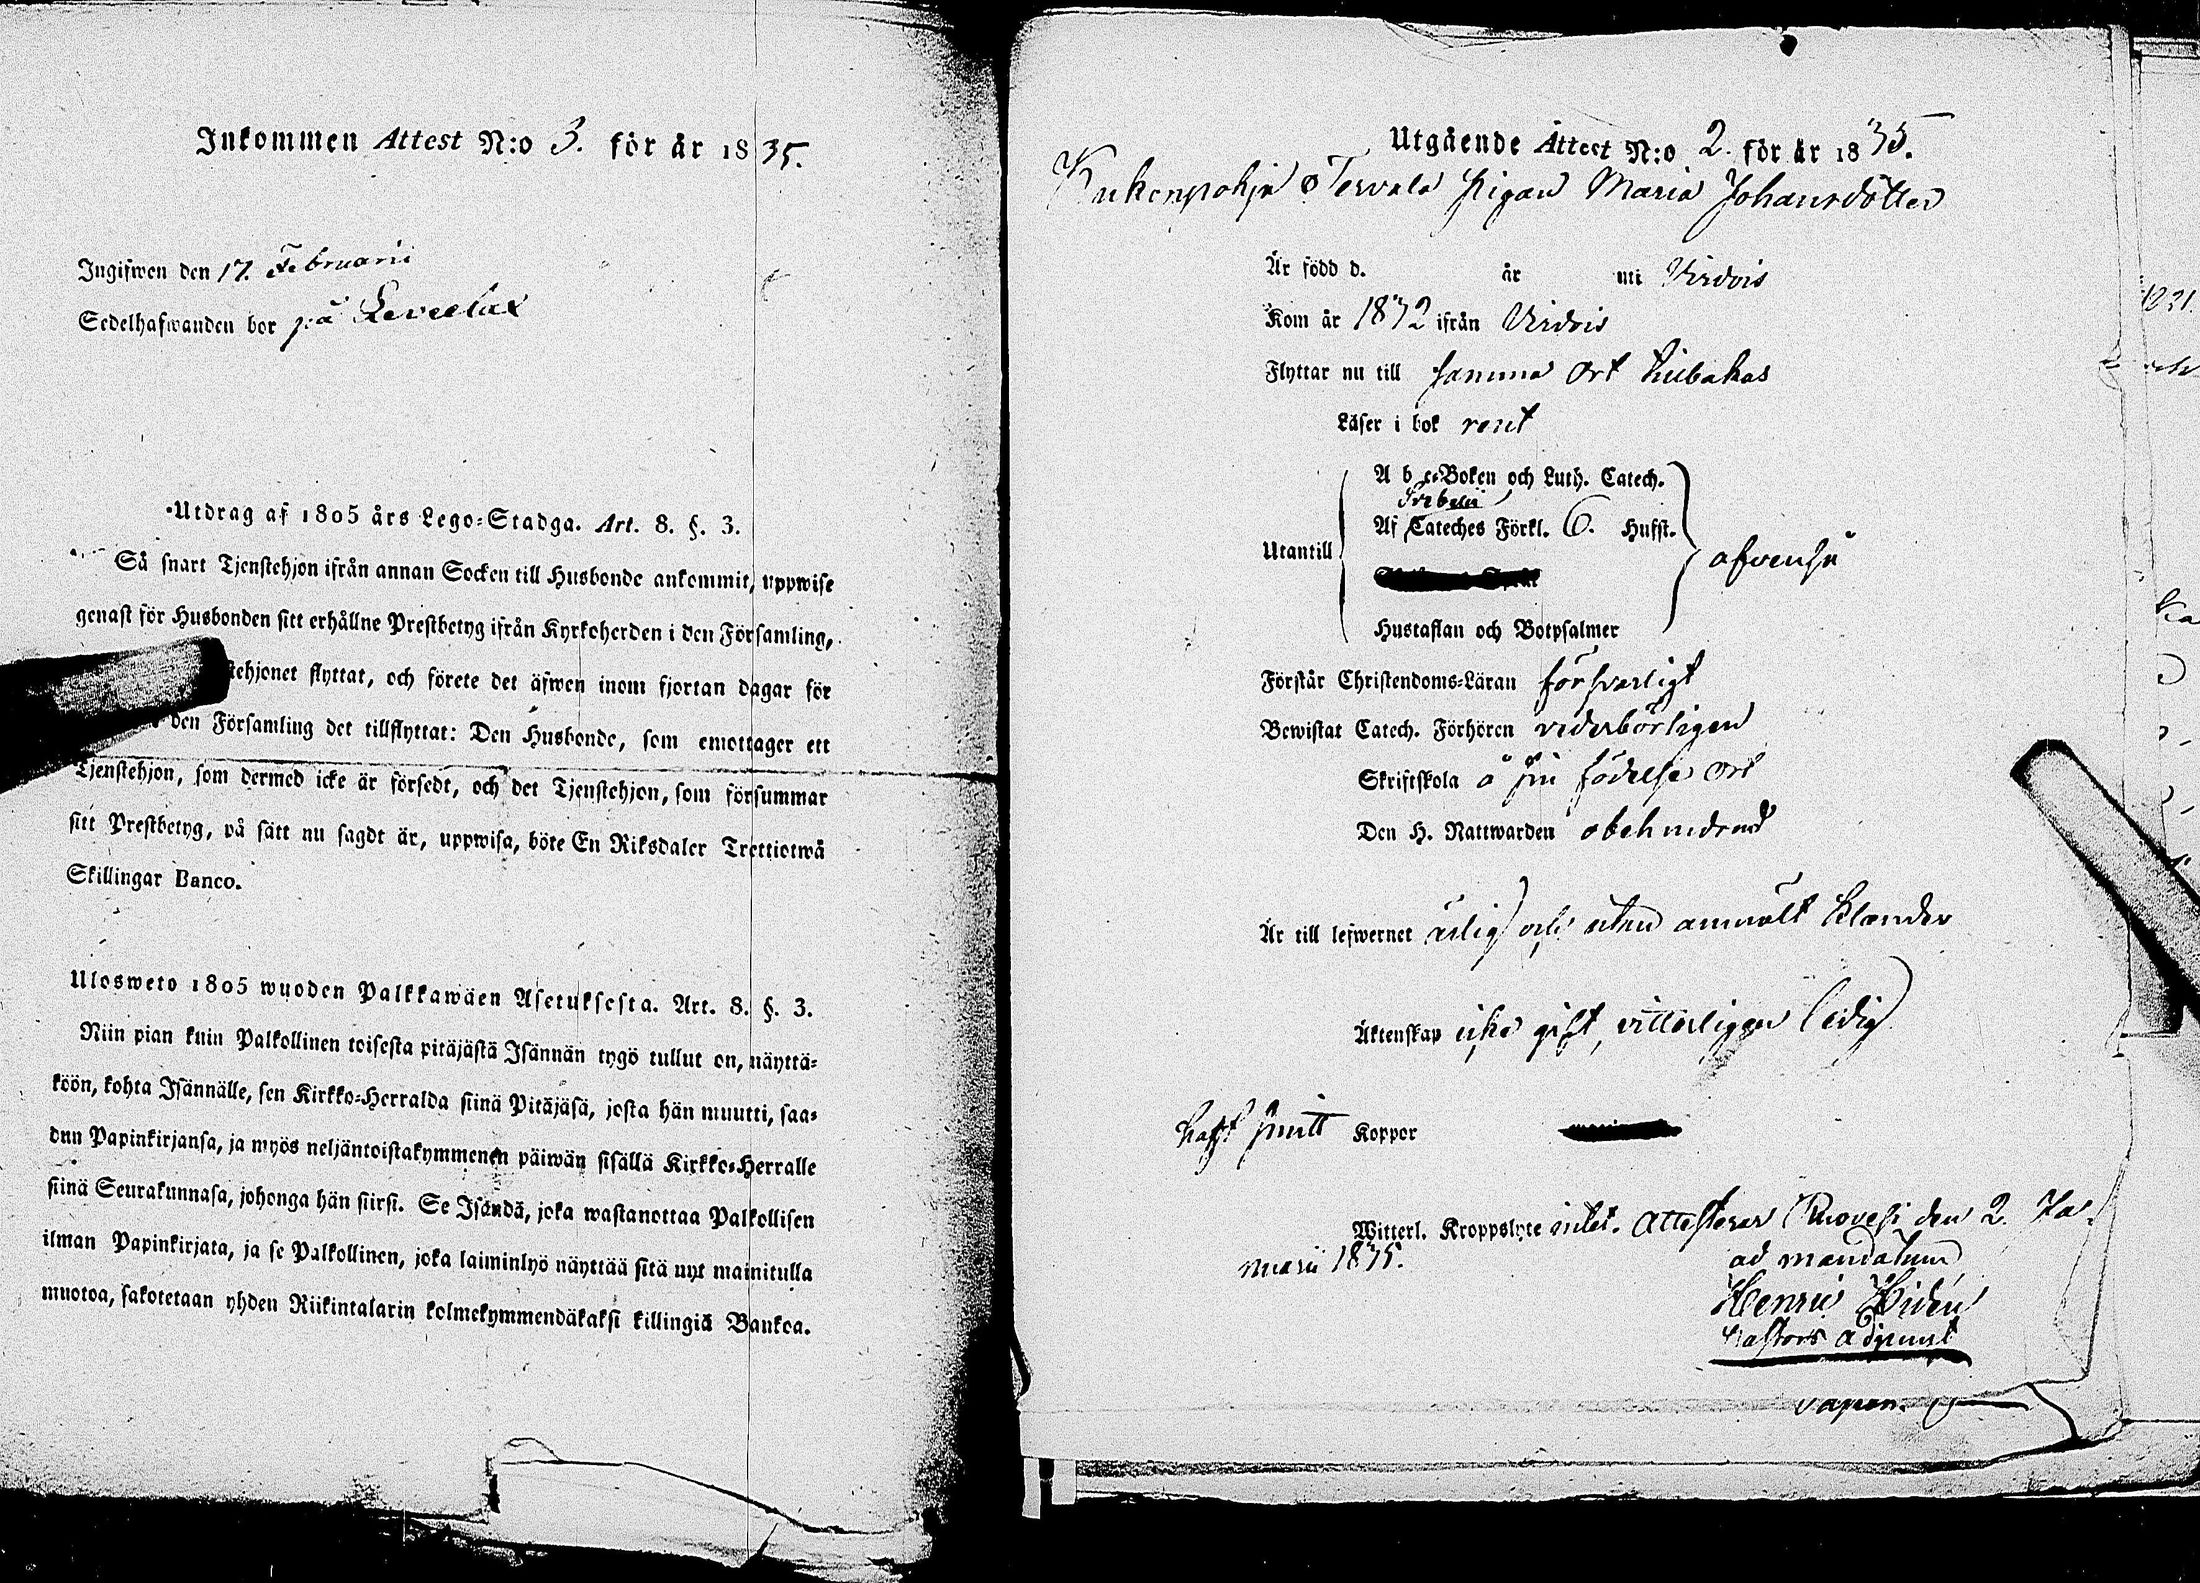 Inkommen Attest N:o 3. för år 1835.
Ingifwen den 17. Februarii
Sedelhafwanden bor på Leveelax
Utdrag af 1805 års Lego-Stadga. Art. 8. §. 3.
Så snart Tjenstehjon ifrån annan Socken till Husbonde ankommit, uppwise
genast för Husbonden sitt erhållne Prestbetyg ifrån Kyrkoherden i den Församling,
stehjonet flyttat, och förete det äfwen inom fjortan dagar för
den Församling det tillflyttat: Den Husbonde, som emottager ett
Tjenstehjon, som dermed icke är försedt, och det Tjenstehjon, som försummar
sitt Prestbetyg, på sätt nu sagdt är, uppwisa, böte En Riksdaler Trettiotwå
Skillingar Banco.
Ulosweto 1805 wuoden Palkkawäen Asetuksesta. Art. 8. §. 3.
Niin pian kuin Palkollinen toisesta pitäjästä Isännän tygö tullut on, näyttä-
köön, kohta Isännälle, sen Kirkko-Herralda siinä Pitäjäsä, josta hän muutti, saa-
dun Papinkirjansa, ja myös neljäntoistakymmenen päiwän sisällä Kirkko-Herralle
siinä Seurakunnasa, johonga hän siirsi. Se Isändä, joka wastanottaa Palkollisen
ilman Papinkirjata, ja se Palkollinen, joka laiminlyö näyttää sitä nyt mainitulla
muotoa, sakotetaan yhden Riikintalarin kolmekymmendäkaksi killingiä Bankoa.
Utgående Attest N:o 2. för år 1835.
Tervala pigan Maria Johansdotter
Är född d. år uti Virdois
Kom år 1832 ifrån Virdois
Flyttar nu till samma ort
Läser i bok rent
A b c-Boken och Luth. Catech.
Svebelii
Af Cateches Förkl. 6. Hufst.
Utantill äfvenså
Hustaflan och Botpsalmer
Förstår Christendoms-Läran försvarligt
Bewistat Catech. Förhören vederbörligen
Skriftskola å sin födelse ort
Den H. Nattwarden obehindrad
Är till lefwernet ärlig och utan anmält klander
Äktenskap icke gift, vitterligen ledig
haft smitt Koppor
Witterl. Kroppslyte intet. Attesterar Ruovesi den 2. Ja-
nuarii 1835.
ad mandatum
Henric Hidén
Pastors adjunct